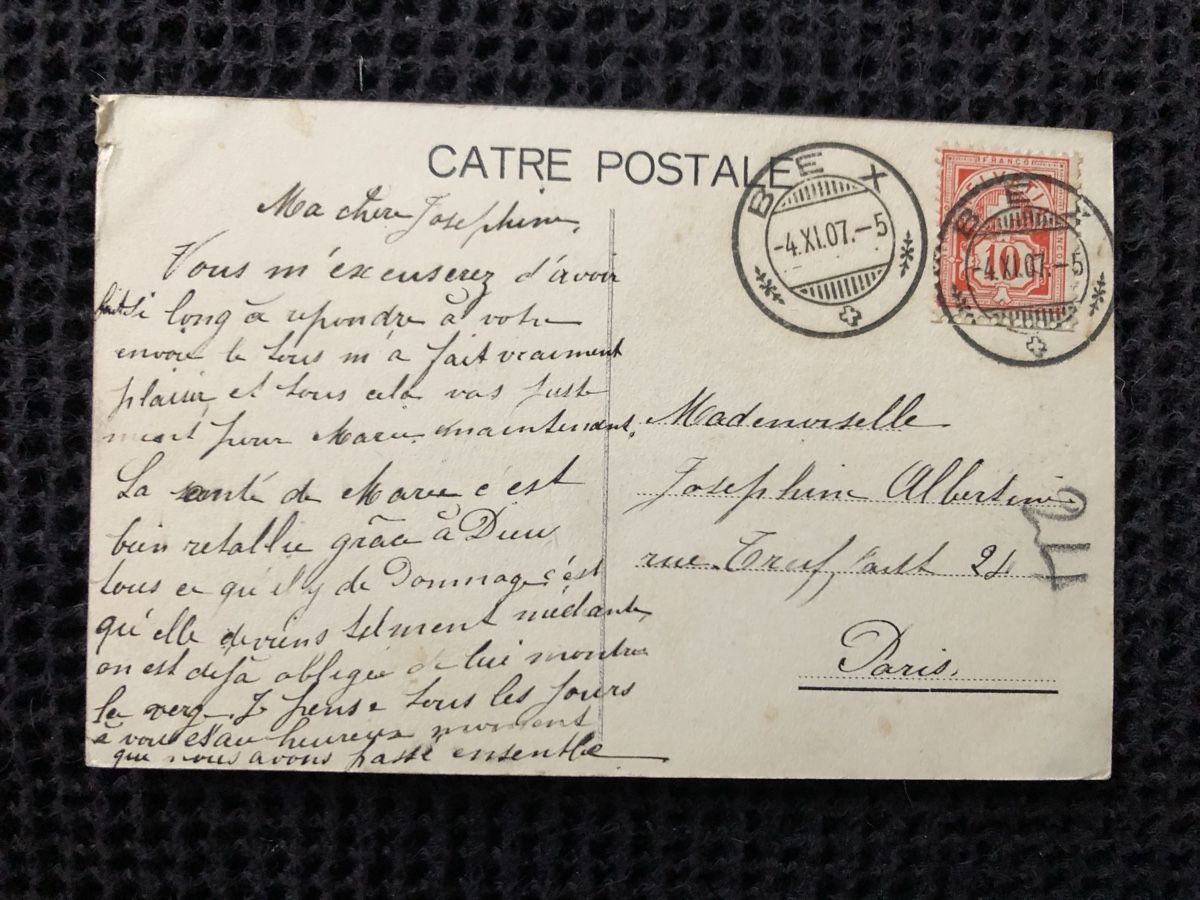 CATRE POSTALE
BEX
-4.XI.07.-5
FRANCO
BEX
10
-4.XI.07.-5
Ma chère Josephine,
Vous m'excuserez d'avoir
fait si long à repondre à votre
envoie le tous m'a fait vraiment
plaisir et tous cela vas juste
ment pour Marie maintenant.
La santé de Marie c'est
bien retablie grâce à Dieu
tous ce qu'il y de Dommage c'est
qu'elle deviens telment méchante,
on est dejà obligée de lui montre
la verge. Je pense tous les jours
à vous et au heureux moment
que nous avons passé ensemble
Mademoiselle
Josephine Albertini
rue 24
Paris.